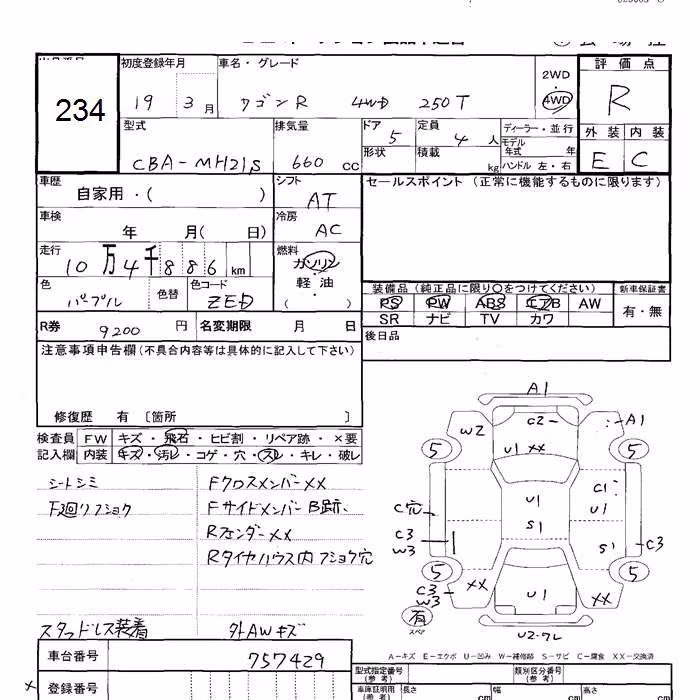 234
初度登録年月
19 3 月
車名・グレード
ワゴンR 4WD 250T
2WD
4WD
評価点
R
型式
CBA-MH21S
排気量
660 cc
ドア
5
形状
定員
4 人
積載
kg
ディーラー・並行
モデル年式 年
ハンドル 左・右
外装 内装
E C
車歴
自家用・( )
シフト
AT
セールスポイント (正常に機能するものに限ります)
車検
年 月( 日)
冷房
AC
走行
10万4千886 km
燃料
ガソリン
軽油
( )
色
パープル
色替
色コード
ZED
装備品 (純正品に限り○をつけてください)
PS PW ABS エアB AW
SR ナビ TV カワ
新車保証書
有・無
R券 9200 円
名変期限 月 日
後日品
注意事項申告欄(不具合内容等は具体的に記入して下さい)
修復歴 有 〔箇所 〕
検査員 FW キズ・飛石・ヒビ割・リペア跡・×要
記入欄 内装 キズ・汚レ・コゲ・穴・スレ・キレ・破レ
シートシミ
下廻リフショク
Fクロスメンバー××
FサイドメンバーB跡.
Rフェンダー××
Rタイヤハウス内フショク穴
スタッドレス装着
外AWキズ
A1
C2
W2
A1
U1 ××
5
5
C1
U1
U1
C穴
S1
C3
W3
S1
C3
5
5
C3
W3
××
U1
××
有
スペア
U2-ワレ
A-キズ E-エクボ U-凹み W-補修跡 S-サビ C-腐食 XX-交換済
車台番号 757429
登録番号
×
型式指定番号
(参考)
類別区分番号
(参考)
車庫証明用
(参考)
長さ cm
幅 cm
高さ cm